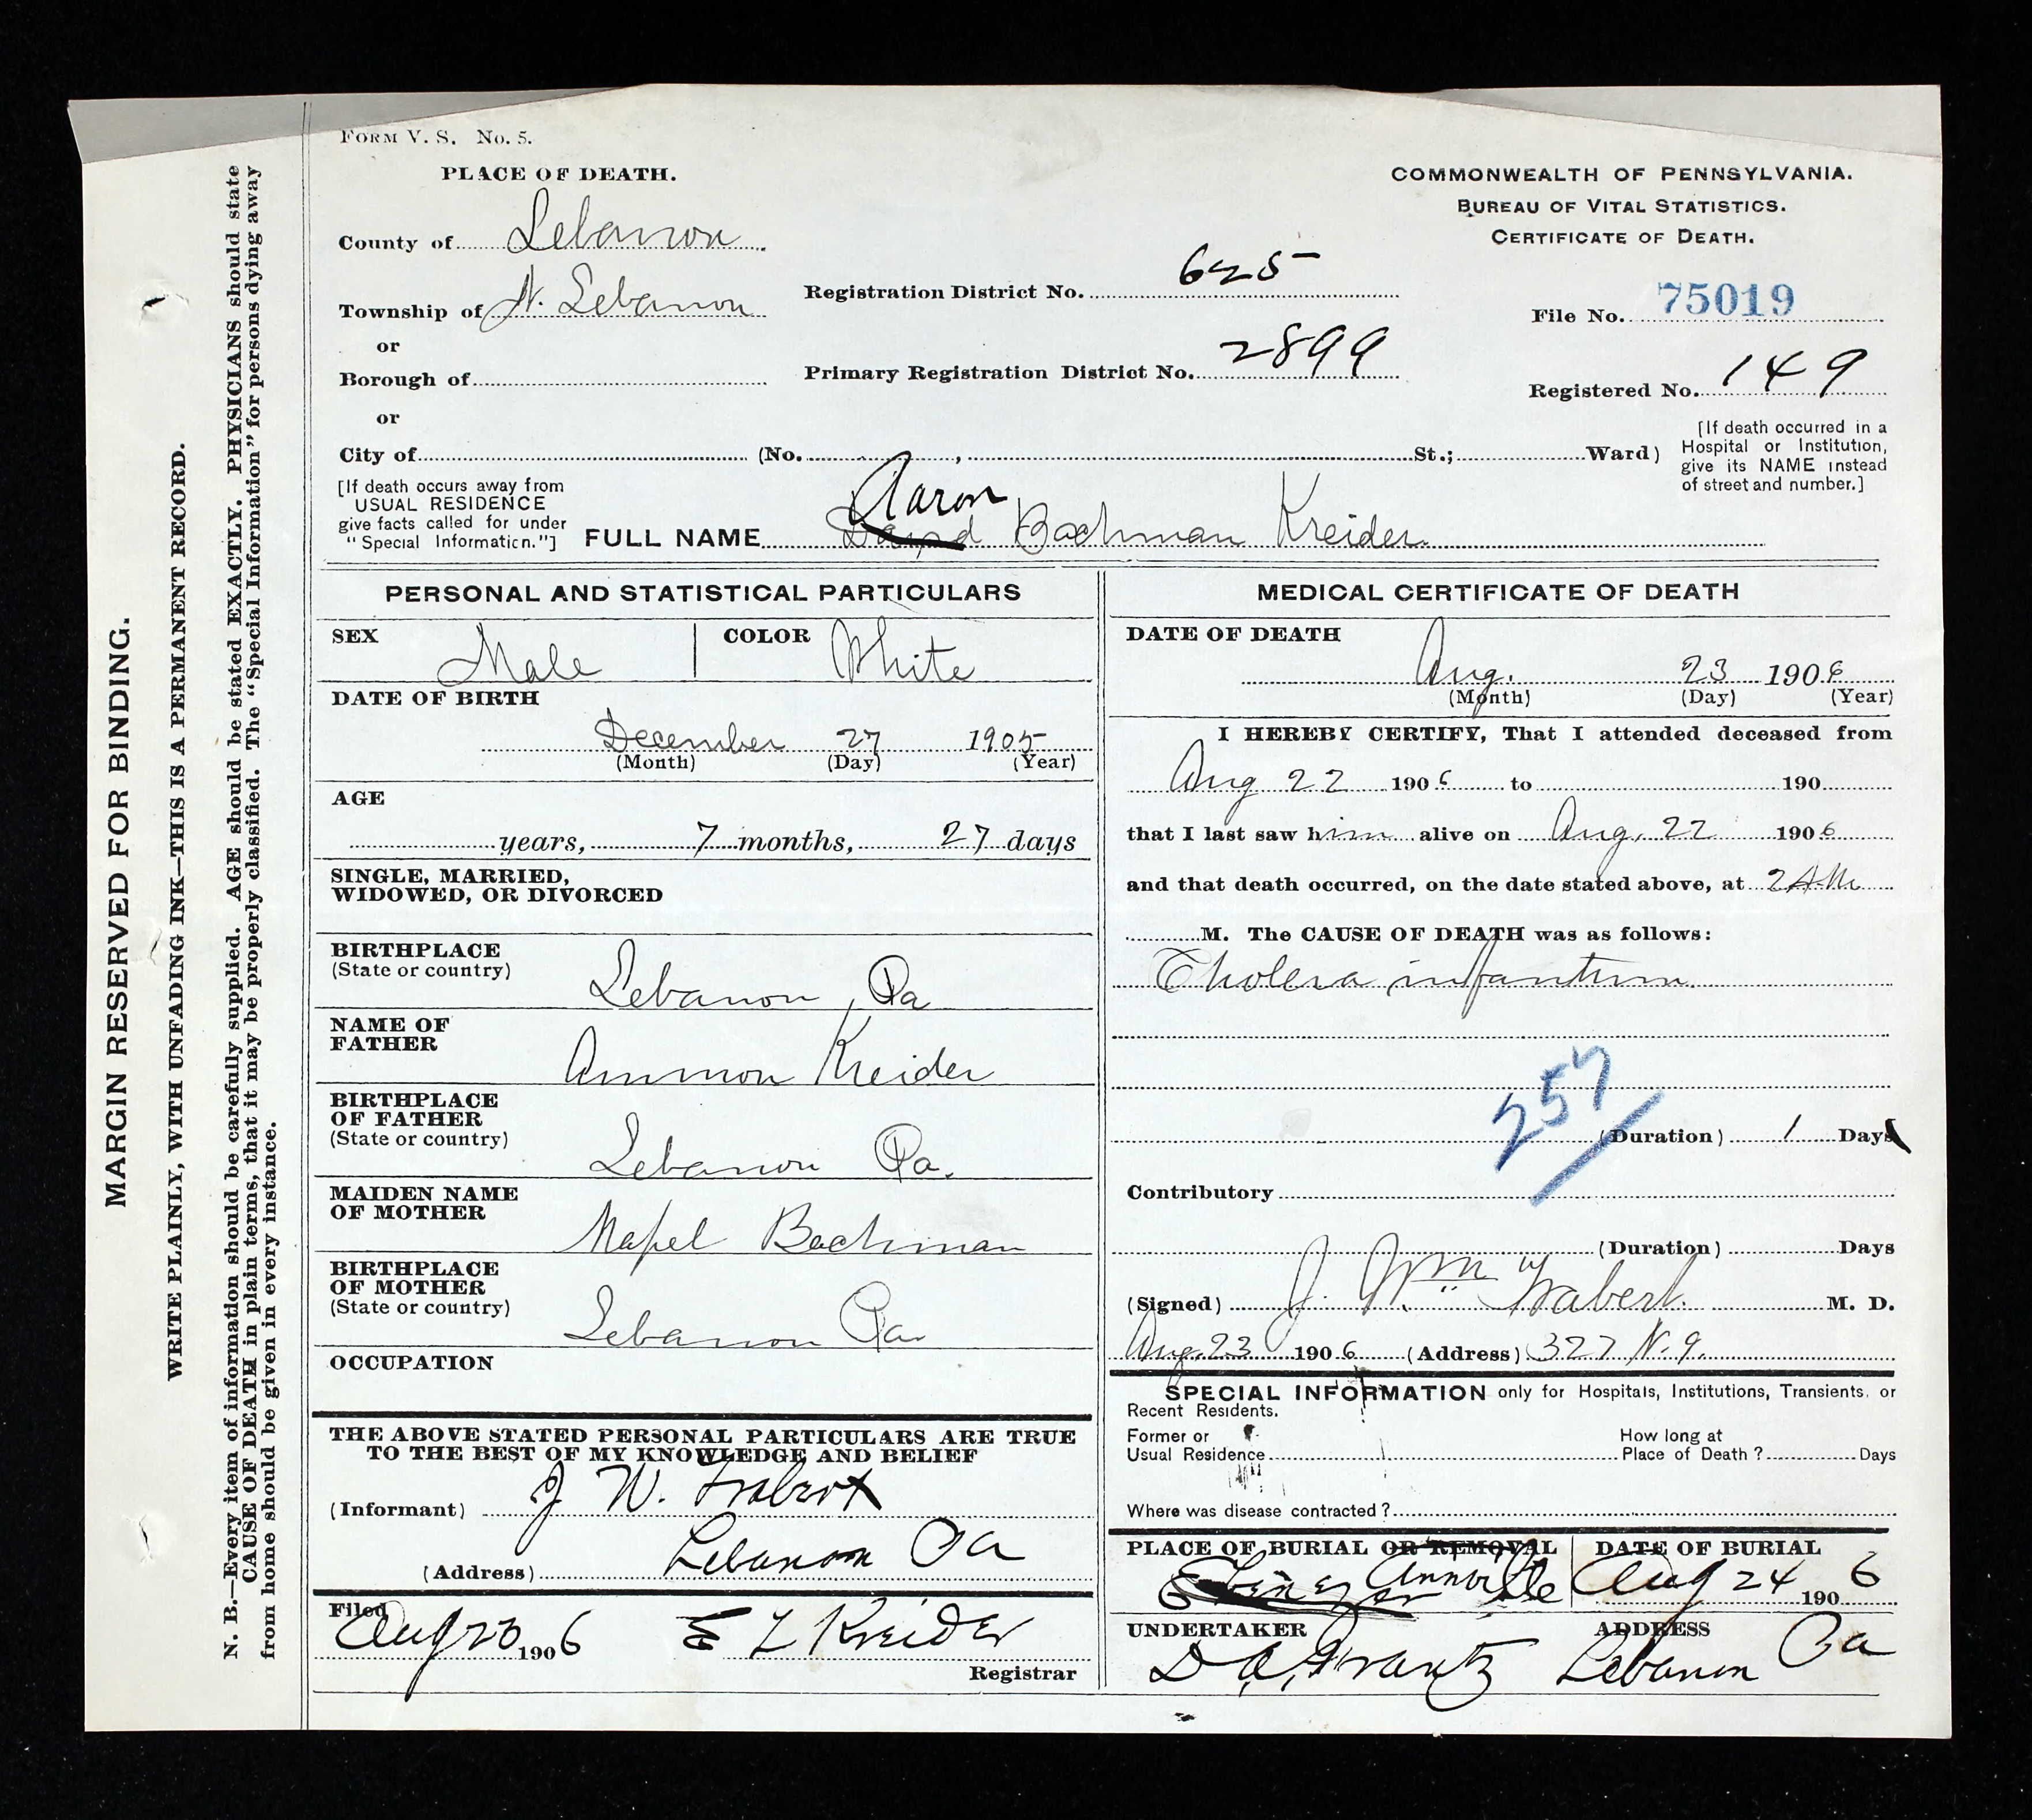 MARGIN RESERVED FOR BINDING.
WRITE PLAINLY, WITH UNFADING INK—THIS IS A PERMANENT RECORD.
N. B.—Every item of information should be carefully supplied. AGE should be stated EXACTLY. PHYSICIANS should state
CAUSE OF DEATH in plain terms, that it may be properly classified. The "Special Information" for persons dying away
from home should be given in every instance.
FORM V. S. No. 5.
PLACE OF DEATH.
County of Lebanon
Township of N. Lebanon
or
Borough of
or
City of (No. , St.; Ward)
Registration District No. 625
Primary Registration District No. 2899
COMMONWEALTH OF PENNSYLVANIA.
BUREAU OF VITAL STATISTICS.
CERTIFICATE OF DEATH.
File No. 75019
Registered No. 149
[If death occurred in a
Hospital or Institution,
give its NAME instead
of street and number.]
[If death occurs away from
USUAL RESIDENCE
give facts called for under
"Special Information."]
Aaron
FULL NAME David Bachman Kreider
PERSONAL AND STATISTICAL PARTICULARS
SEX Male COLOR White
DATE OF BIRTH
December 27 1905
(Month) (Day) (Year)
AGE
years, 7 months, 27 days
SINGLE, MARRIED,
WIDOWED, OR DIVORCED
BIRTHPLACE
(State or country)
Lebanon, Pa
NAME OF
FATHER
Ammon Kreider
BIRTHPLACE
OF FATHER
(State or country)
Lebanon Pa.
MAIDEN NAME
OF MOTHER
Mapel Bachman
BIRTHPLACE
OF MOTHER
(State or country)
Lebanon Pa
OCCUPATION
THE ABOVE STATED PERSONAL PARTICULARS ARE TRUE
TO THE BEST OF MY KNOWLEDGE AND BELIEF
(Informant) J W.
(Address) Lebanon Pa
Filed
Aug 23 1906 E L Kreider
Registrar
MEDICAL CERTIFICATE OF DEATH
DATE OF DEATH
Aug. 23 1906
(Month) (Day) (Year)
I HEREBY CERTIFY, That I attended deceased from
Aug 22 1906 to 190
that I last saw him alive on Aug. 22 1906
and that death occurred, on the date stated above, at 2 AM
M. The CAUSE OF DEATH was as follows:
Cholera infantum.
257
(Duration) 1 Days
Contributory
(Duration) Days
(Signed) J. Wm M. D.
Aug. 23 1906 (Address) 327 N. 9.
SPECIAL INFORMATION only for Hospitals, Institutions, Transients, or
Recent Residents.
Former or
Usual Residence
How long at
Place of Death? Days
Where was disease contracted?
PLACE OF BURIAL OR REMOVAL
Ebenezer Annville
DATE OF BURIAL
Aug 24 1906
UNDERTAKER
D. A. Frantz
ADDRESS
Lebanon Pa